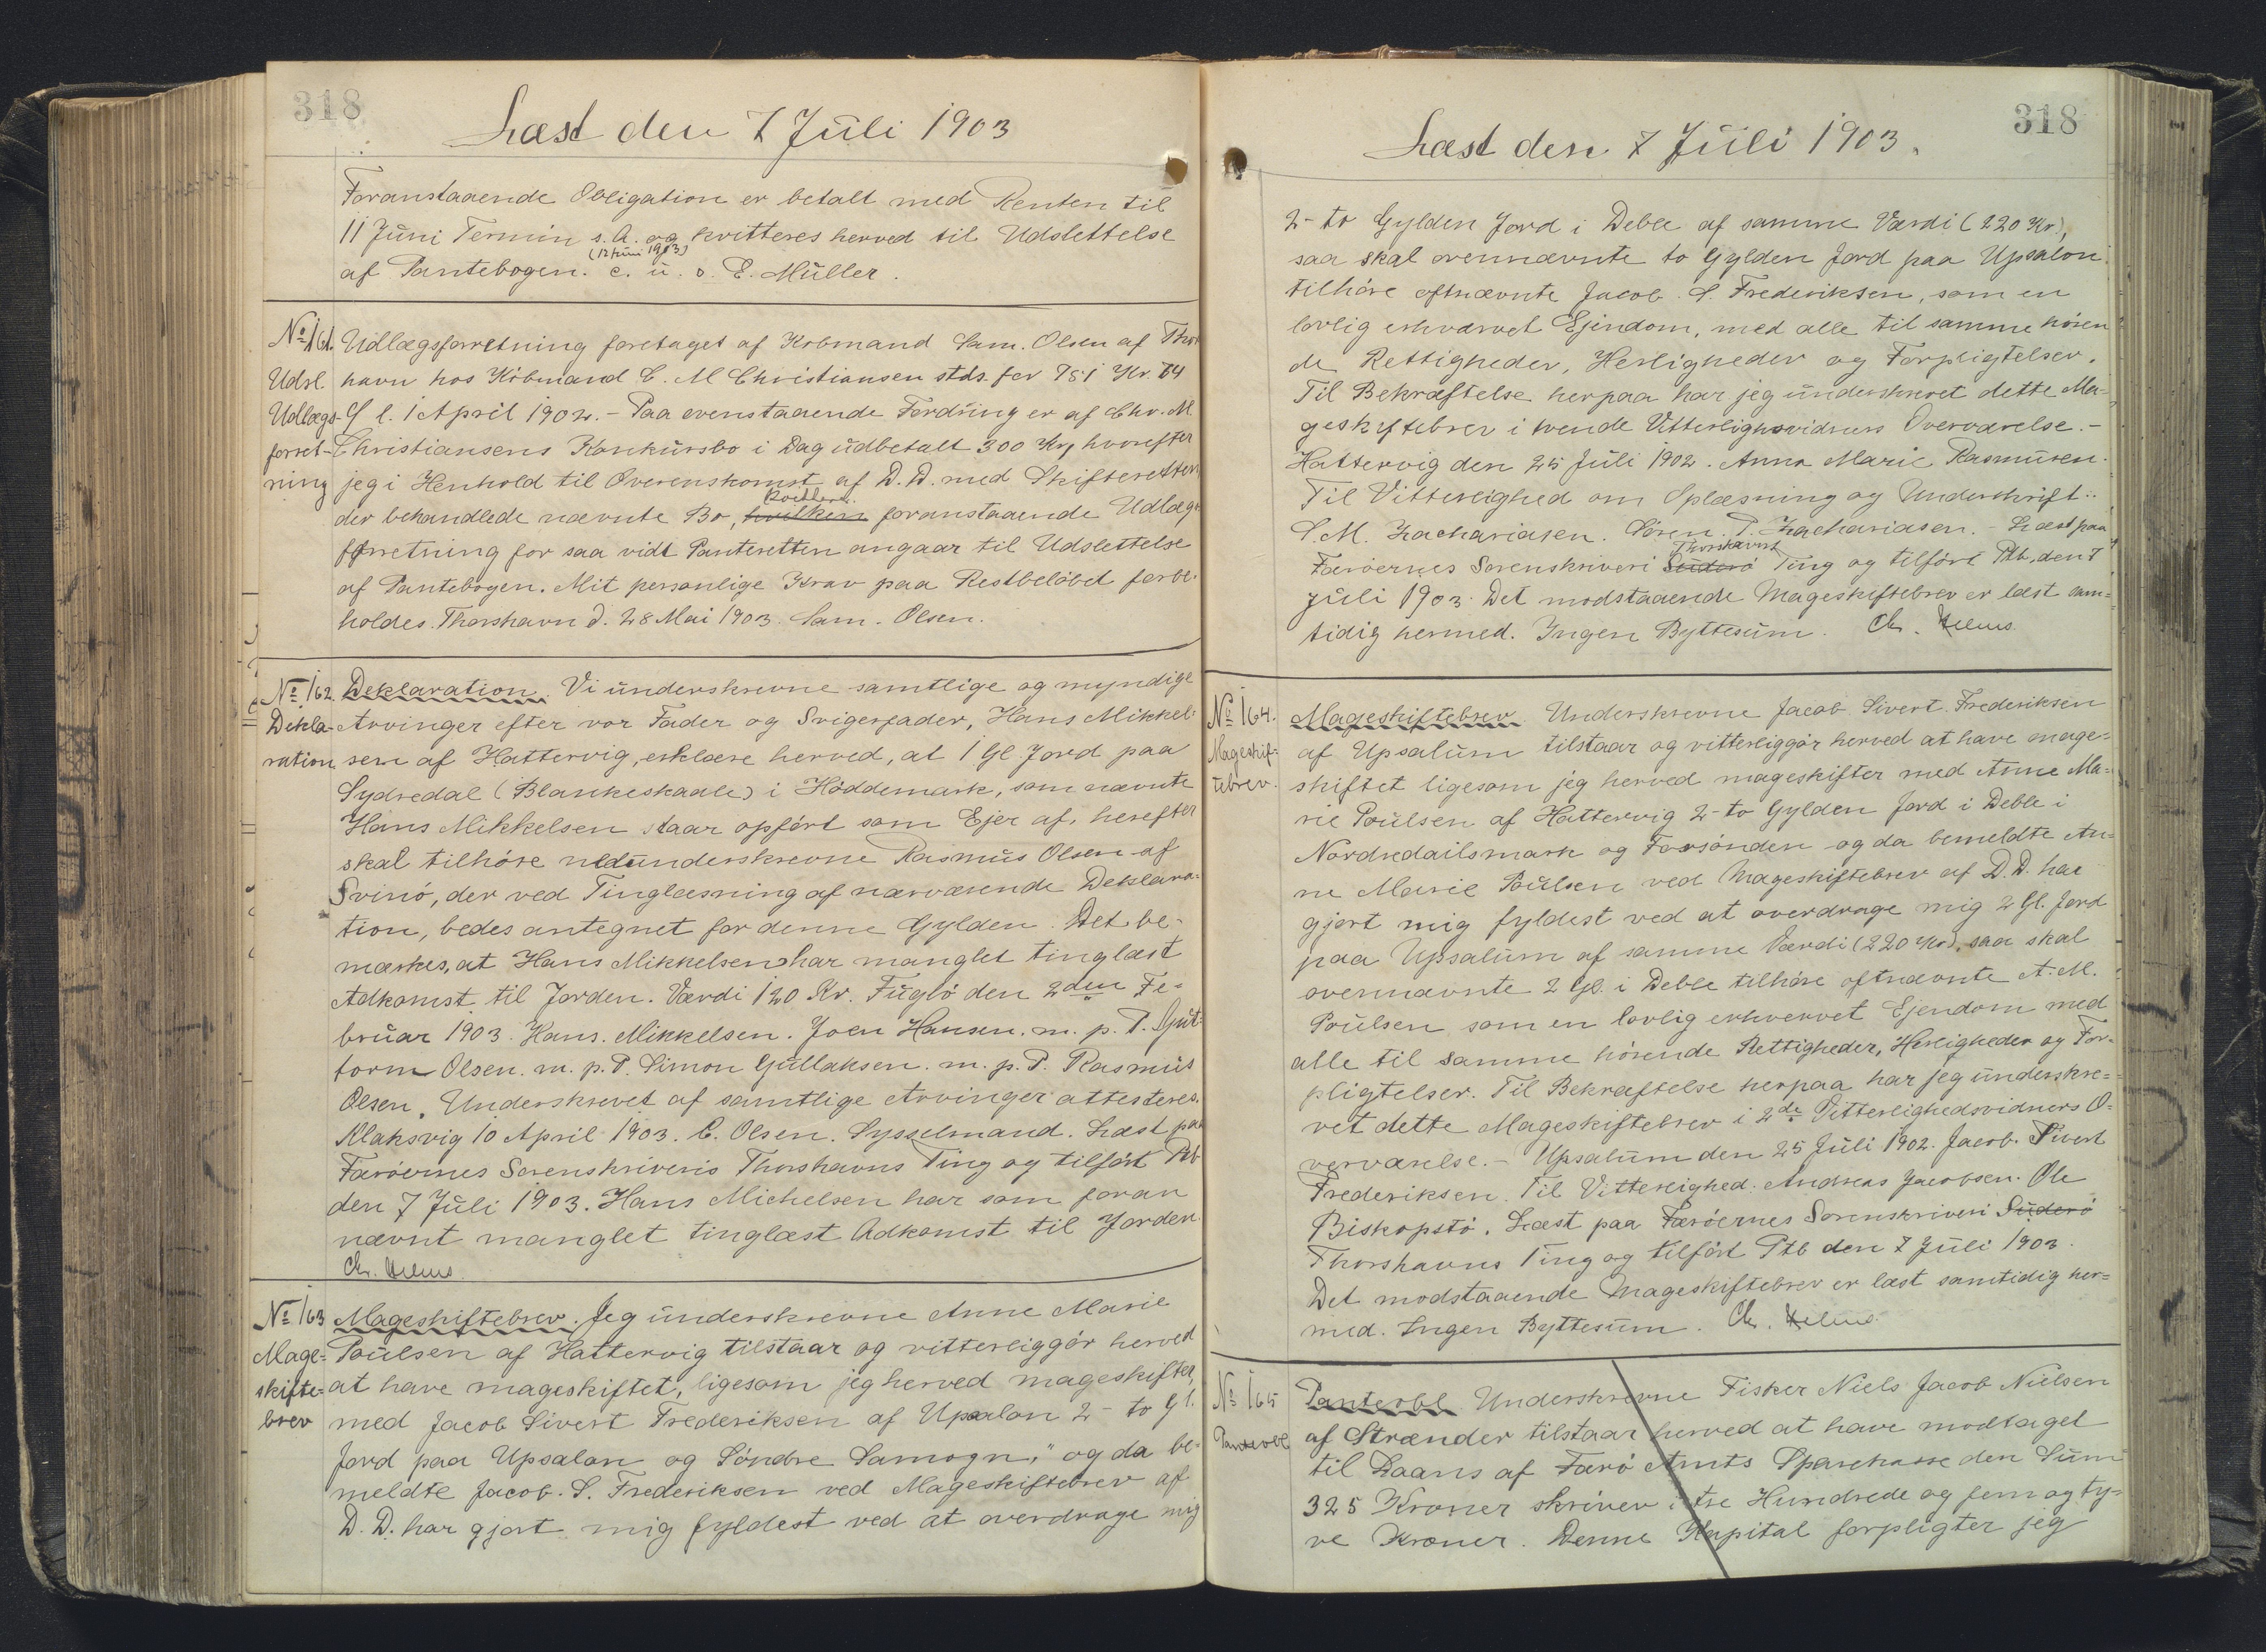 318
Læst den 7 Juli 1903
Foranstaaende Obligation er betalt med Renten til
11 Juni Termin s. A. og kvitteres herved til Udslettelse
(12 Juni 1903)
af Pantebogen. c. u. s. E. Müller.
No 161. Udlægsforretning foretaget af Kobmand Sam. Olsen af Thors
Udsl. havn hos Köbmand C. M Christiansen stds. for 781 Kr. 84
Udlægs- f l. 1 April 1902. - Paa ovenstaaende Fordring er af Chr. M.
forret- Christiansens Konkursbo i Dag udbetalt 300 Kr, hvorefter
ning jeg i Henhold til Overenskomst af D. D. med Skifteretten
der behandlede nævnte Bo, hvilken foranstaaende Udlægs
forretning for saa vidt Panteretten angaar til Udslettelse
af Pantebogen. Mit personlige Krav paa Restbelöbet forbe-
holdes. Thorshavn d. 28 Mai 1903. Sam. Olsen.
No 162. Deklaration. Vi underskrevne samtlige og myndige
Dekla- Arvinger efter vor Fader og Svigerfader, Hans Mikkel-
ration sen af Hattervig, erklære herved, at 1 Gl. Jord paa
Sydredal (Blankeskaale) i Höddemark, som nævnte
Hans Mikkelsen staar opfört som Ejer af, herefter
skal tilhöre nedunderskrevne Rasmus Olsen af
Svinö, der ved Tinglæsning af nærværende Deklara-
tion, bedes antegnet for denne Gylden. Det be-
mærkes, at Hans Mikkelsen har manglet tinglæst
Adkomst til Jorden. Værdi 120 Kr. Fuglö den 2den Fe-
bruar 1903. Hans. Mikkelsen. Joen Hansen. m. p. P. Gut-
torm Olsen. m. p. P. Simon Gullaksen. m. p. P. Rasmus
Olsen. Underskrevet af samtlige Arvinger attesteres.
Klaksvig 10 April 1903. C. Olsen. Sysselmand. Læst paa
Færöernes Sorenskriveris Thorshavns Ting og tilfört Ptb
den 7 Juli 1903. Hans Michelsen har som foran
nævnt manglet tinglæst Adkomst til Jorden.
Chr.
No 163 Mageskiftebrev. Jeg underskrevne Anne Marie
Mage- Poulsen af Hattervig tilstaar og vitterliggör herved
skifte- at have mageskiftet, ligesom jeg herved mageskifter,
brev med Jacob Sivert Frederiksen af Upsalon 2 - to Gl.
Jord paa Upsalon og Söndre Samogn," og da be-
meldte Jacob. S. Frederiksen ved Mageskiftebrev af
D. D. har gjort mig fyldest ved at overdrage mig
318
Læst den 7 Juli 1903.
2 - to Gylden Jord i Deble af samme Værdi (220 Kr),
saa skal ovennævnte to Gylden Jord paa Upsalon
tilhöre oftnævnte Jacob. S. Frederiksen, som en
lovlig erhvervet Ejendom, med alle til samme hören-
de Rettigheder, Herligheder og Forpligtelser.
Til Bekræftelse herpaa har jeg underskrevet dette Ma-
geskiftebrev i tvende Vitterlighsvidners Overværelse.-
Hattervig den 25 Juli 1902. Anna Marie Rasmusen.
Til Vitterlighed om Oplæsning og Underskrift:.
S. M. Zachariasen. Sören. P. Zachariasen. - Læst paa
Thorshavns
Færöernes Sorenskriveri Suderö Ting og tilfört Ptb. den 7
Juli 1903. Det modstaaende Mageskiftebrev er læst sam-
tidig hermed. Ingen Byttesum. Chr.
No 164. Mageskiftebrev. Underskrevne Jacob Sivert Frederiksen
Mageskif- af Upsalum tilstaar og vitterliggör herved at have mage-
tebrev. skiftet ligesom jeg herved mageskifter med Anne Ma-
rie Poulsen af Hattervig 2 - to Gylden Jord i Deble i
Nordredailsmark og Forsönden og da bemeldte An-
ne Marie Poulsen ved Mageskiftebrev af D. D. har
gjort mig fyldest ved at overdrage mig 2 Gl. Jord
paa Upsalum af samme Værdi (220 Kr), saa skal
ovennævnte 2 Gl. i Deble tilhöre oftnævnte A. M.
Poulsen som en lovlig erhvervet Ejendom med
alle til samme hörende Rettigheder, Herligheder og For-
pligtelser. Til Bekræftelse herpaa har jeg underskre-
vet dette Mageskiftebrev i 2de Vitterlighedsvidners O-
verværelse. - Upsalum den 25 Juli 1902. Jacob. Sivert
Frederiksen. Til Vitterlighed. Andreas Jacobsen. Ole
Biskopstö. Læst paa Færöernes Sorenskriveri Suderö
Thorshavns Ting og tilfört Ptb den 7 Juli 1903.
Det modstaaende Mageskiftebrev er læst samtidig her-
med. Ingen Byttesum. Chr.
No 165 Panteobl. Underskrevne Fisker Niels Jacob Nielsen
Panteobl af Strænder tilstaar herved at have modtaget
til Laans af Færö Amts Sparekasse den Sum
325 Kroner skriver i tre Hundrede og fem og ty-
ve Kroner. Denne Kapital forpligter jeg